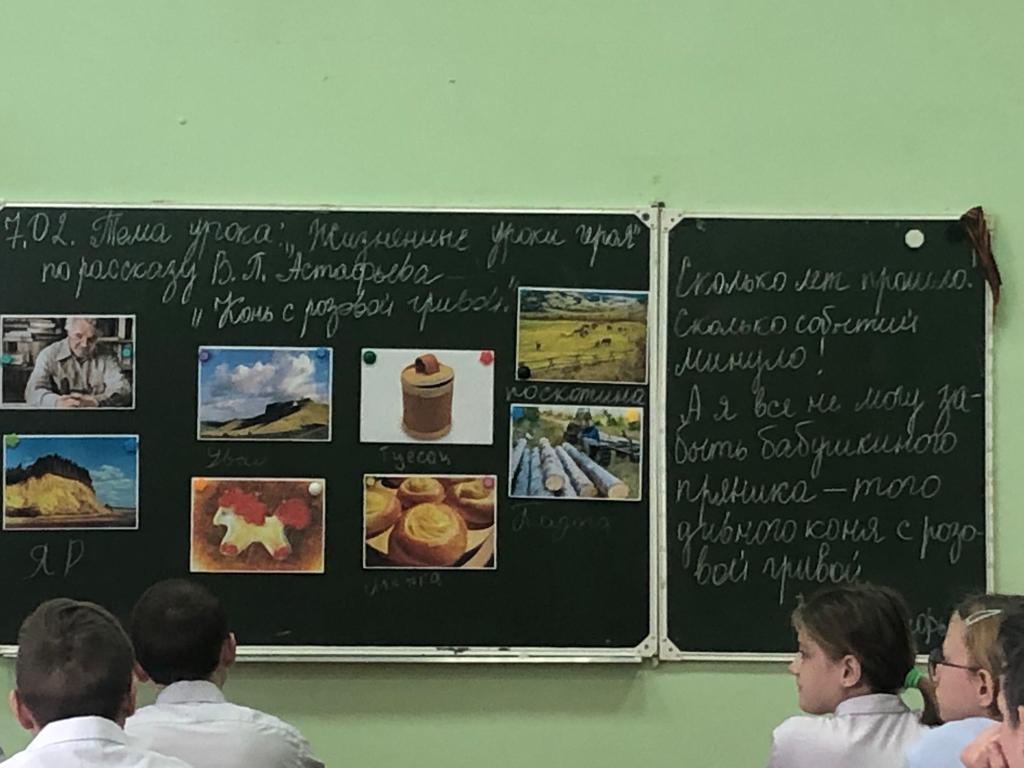 7.02. Тема урока: „Жизненные уроки героя"
по рассказу В. П. Астафьева
„Конь с розовой гривой."
поскотина
Увал
Туесок
ЯР
Сколько лет прошло.
Сколько событий
минуло!
А я все не могу за-
быть бабушкиного
пряника – того
дивного коня с розо-
вой гривой